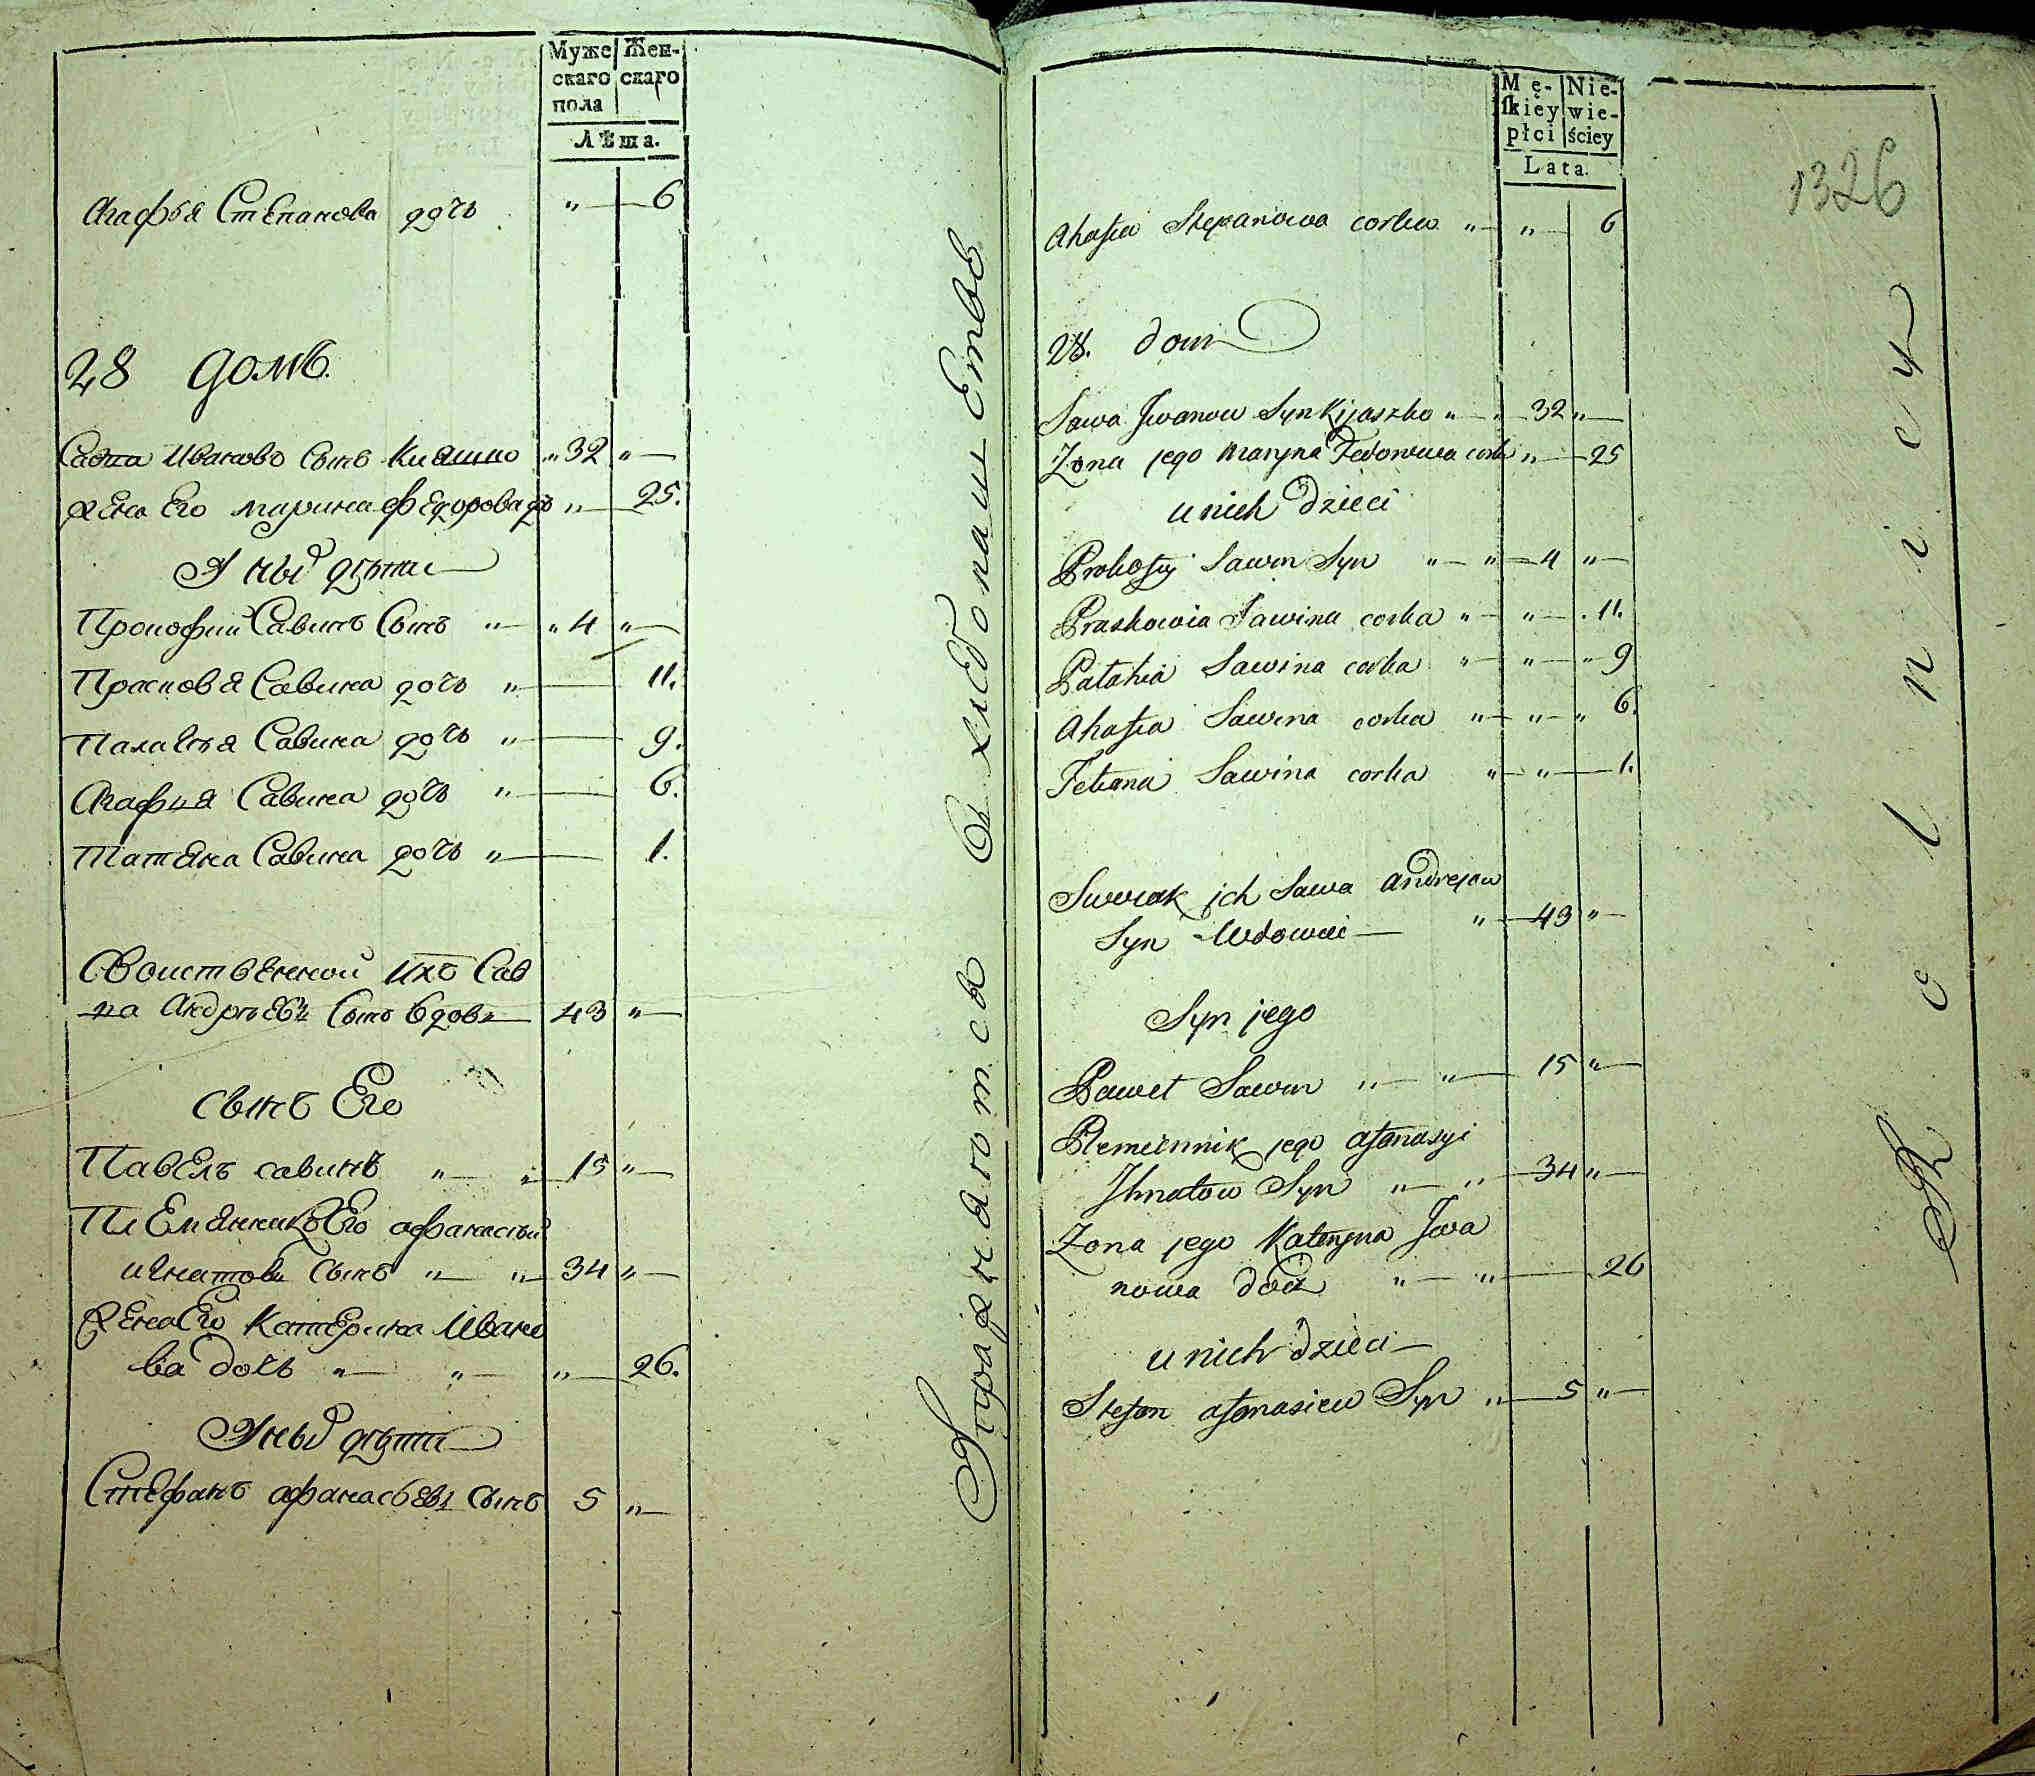 Муже Жен-
скаго скаго
пола
Лѣта.
Агафья Степанова дочь " 6
28 домъ.
Савка Ивановъ сынъ Кияшко " 32 "
жена Его Марина Федорова дочь " 25.
У ныхъ дѣти
Прокофий Савинъ сынъ " " 4 "
Прасковья Савина дочь " 11.
Палагея Савина дочь " 9.
Агафия Савина дочь " 6.
Татяна Савина дочь " 1.
Своиственной ихъ Сав
ка Андрѣевъ сынъ вдовъ 43 "
сынъ Его
Павелъ савинъ " " 15 "
Племянникъ Его афанасий
игнатовъ сынъ " " 34 "
жена Его Катерина Ивано
ва дочь " " " 26.
У ныхъ дѣти
Стефанъ афанасьевъ сынъ 5 "
Упражняютсь в хлебопашествѣ
Mę- Nie-
skiey wie-
płci ściey
Lata.
1326
Ahafia Stepanowa corka " " 6
28. dom
Sawa Jwanow Syn Kijaszko " " 32 "
Zona jego Maryna Fedorowa corka " 25
u nich dzieci
Prokofiy Sawin Syn " " 4 "
Praskowia Sawina corka " " 11.
Palahia Sawina corka " " " 9
Ahafia Sawina corka " " " 6.
Tetiana Sawina corka " " 1.
Swoiak ich Sawa Andrejow
Syn Wdowiec " 43 "
Syn jego
Paweł Sawin " " 15 "
Plemiennik jego afanasyi
Jhnatow Syn " " 34 "
Zona jego Kateryna Jwa
nowa docz " " 26
u nich dzieci
Stefan afanasiew Syn " 5 "
Rolnicy